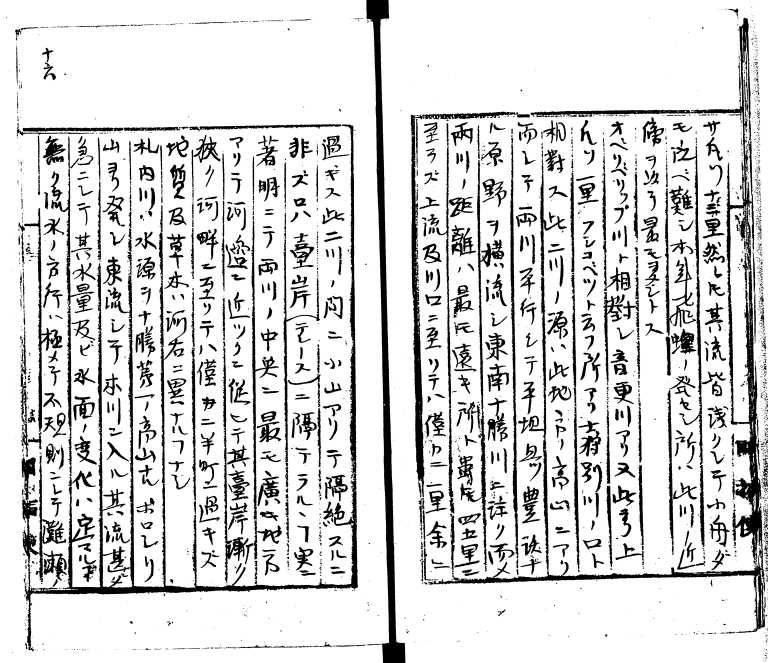 サ凡ソ十三里然レ氏其流皆浅クシテ小舟ダ
モ泛ベ難シ本年飛蝗ノ発セシ所ハ此川ノ近
傍ヲ以テ最モ
オベリベリップ川ト相對シ音更川アリ又此ヨリ上
凡ソ一里フシコベツト云フ所アリ 別川ノ口ト
相對ス此二川ノ源ハ此地ノ高山ニアリ
而シテ両川平行シテ平坦且ツ豊
ル原野ヲ横流シ東南十勝川ニ注ク而〆
両川ノ距離ハ最モ遠キ所ト雖氏四五里ニ
至ラズ上流及川口ニ至リテハ僅カニ一里余ニ
十六
過ギス此二川ノ間ニ小山アリテ隔絶スルニ
非ズ只ハ臺岸(テレース)ニ隔テラルヽフ実ニ
著明ニテ両川ノ中央ニ最モ廣キ地
アリテ河邊ニ近ツクニ從ヒテ其臺岸漸ク
狭ク河畔ニ至リテハ僅カニ半町ニ過キズ
地質及草木ハ河右ニ異ナルフナシ
札内川ハ水源ヲ十勝第一ノ高山ナルポロシリ
山ヨリ発シ東流シテ本川ニ入ル其流甚ダ
急ニシテ其水量及ビ水面ノ変化ハ定マル
無ク流水ノ方行ハ極メテ不規則ニシテ灘瀬ノ